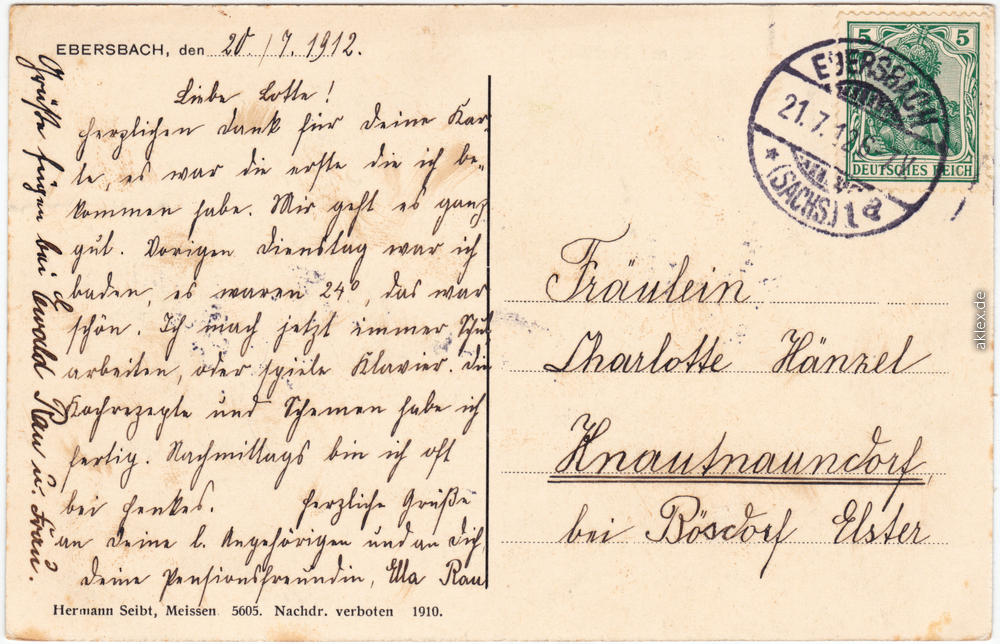 EBERSBACH, den 20./7. 1912.
Liebe Lotte!
Herzlichen Dank für Deine Kar-
te, es war die erste die ich be-
kommen habe. Mir geht es ganz
gut. Vorigen Dienstag war ich
baden, es waren 24°, das war
schön. Ich mach jetzt immer Schul
arbeiten, oder spiele Klavier. Die
Kochrezepte und Schemen habe ich
fertig. Nachmittags bin ich oft
bei Henkes. Herzliche Grüße
an Deine l. Angehörigen und an Dich,
Deine Pensionsfreundin, Ella Rau
Grüße fügen bei Ewald Rau u. Frau.
Hermann Seibt, Meissen 5605. Nachdr. verboten 1910.
5 5
DEUTSCHES REICH
EBERSBACH
21.7.12.6-7V.
* (SACHS.) 1 a
Fräulein
Charlotte Hänzel
Knautnaundorf,
bei Bösdorf Elster
aklex.de